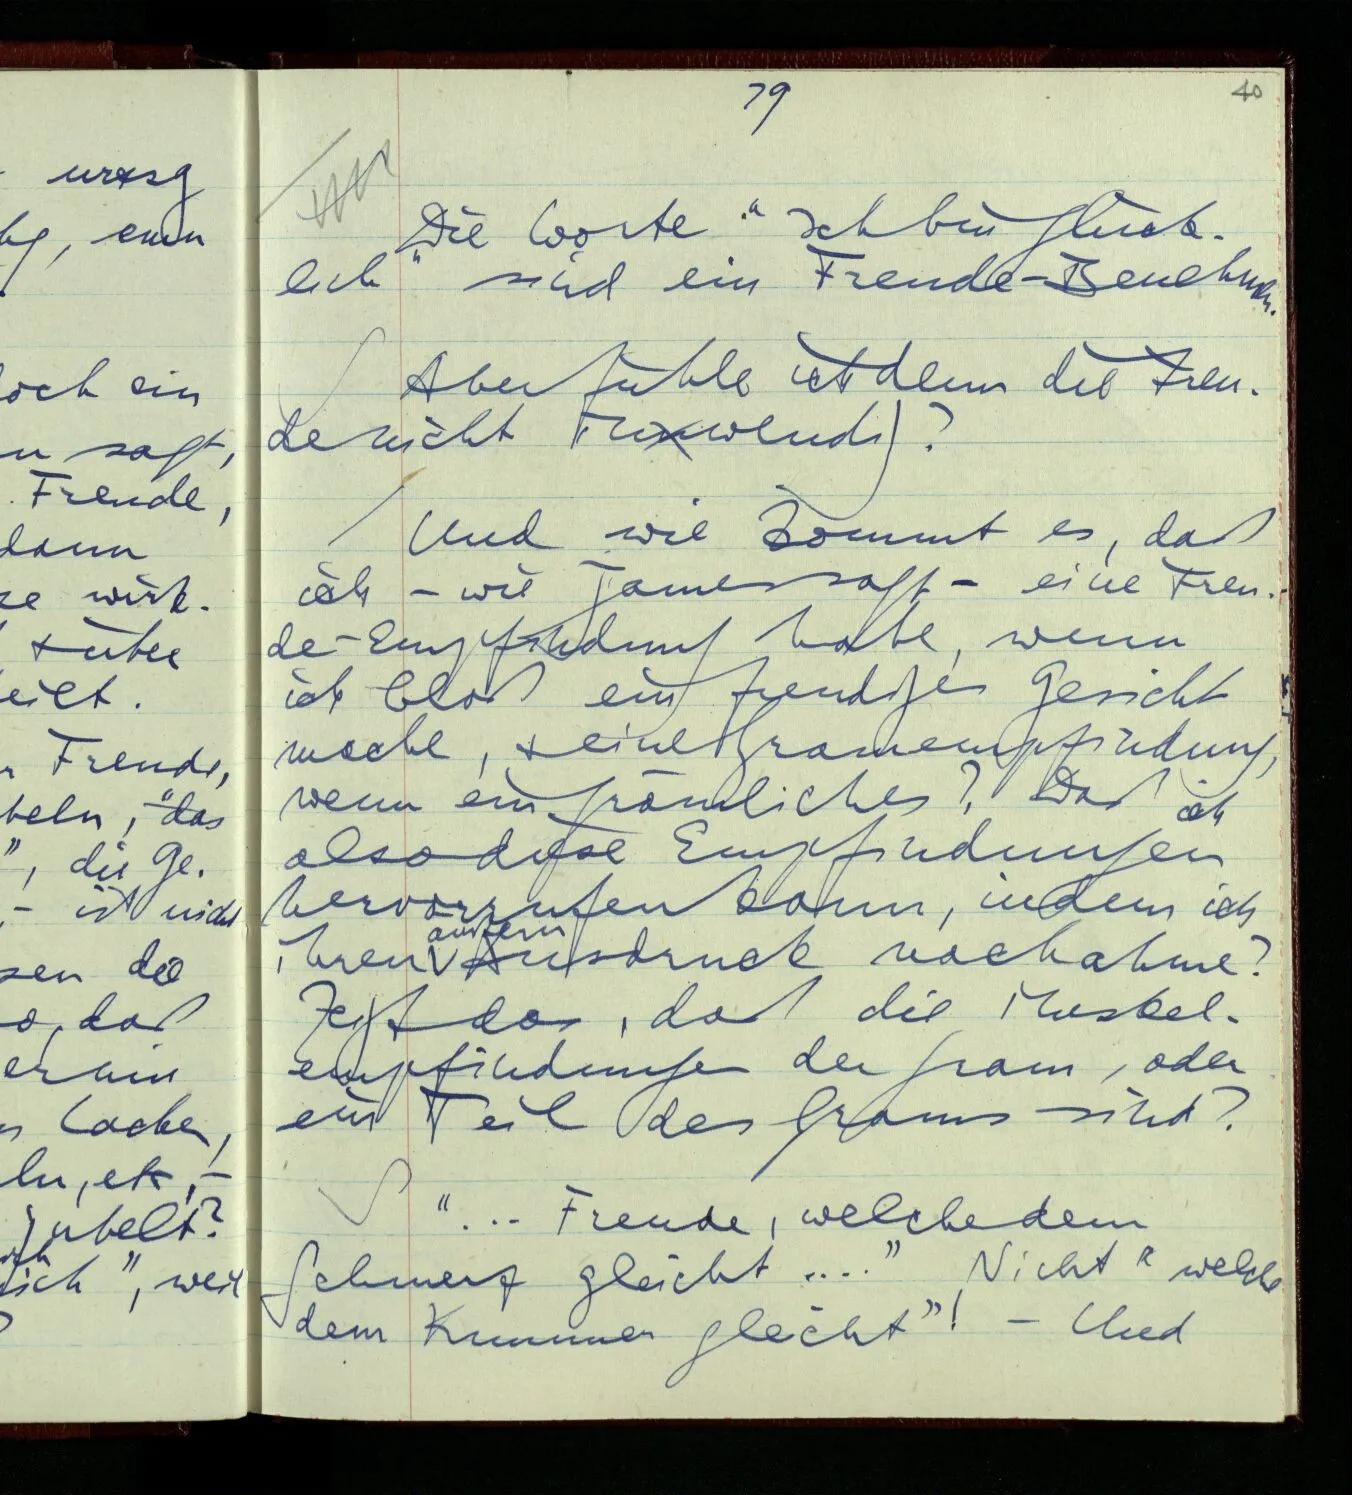 79
40
Die Worte "Ich bin glück-
lich" sind ein Freude-Benehmen.
Aber fühle ich denn die Freu-
de nicht inwendig?
Und wie kommt es, daß
ich – wie James sagt – eine Freu-
de-Empfindung habe, wenn
ich bloß ein freudiges Gesicht
mache, & eine Gramempfindung,
wenn ein grämliches? Daß ich
also diese Empfindungen
hervorrufen kann, indem ich
ihren äußern Ausdruck nachahme?
Zeigt das, daß die Muskel-
empfindungen der Gram, oder
ein Teil des Grams sind?
"... Freude, welche dem
Schmerz gleicht ...." Nicht "welche
dem Kummer gleicht"! – Und
ein
sagt,
Freude,
dann
wirk-
& über
Freude,
"das
", die Ge-
– ist nicht
die
daß
Lachen,
etc, –
jubelt?
", weil